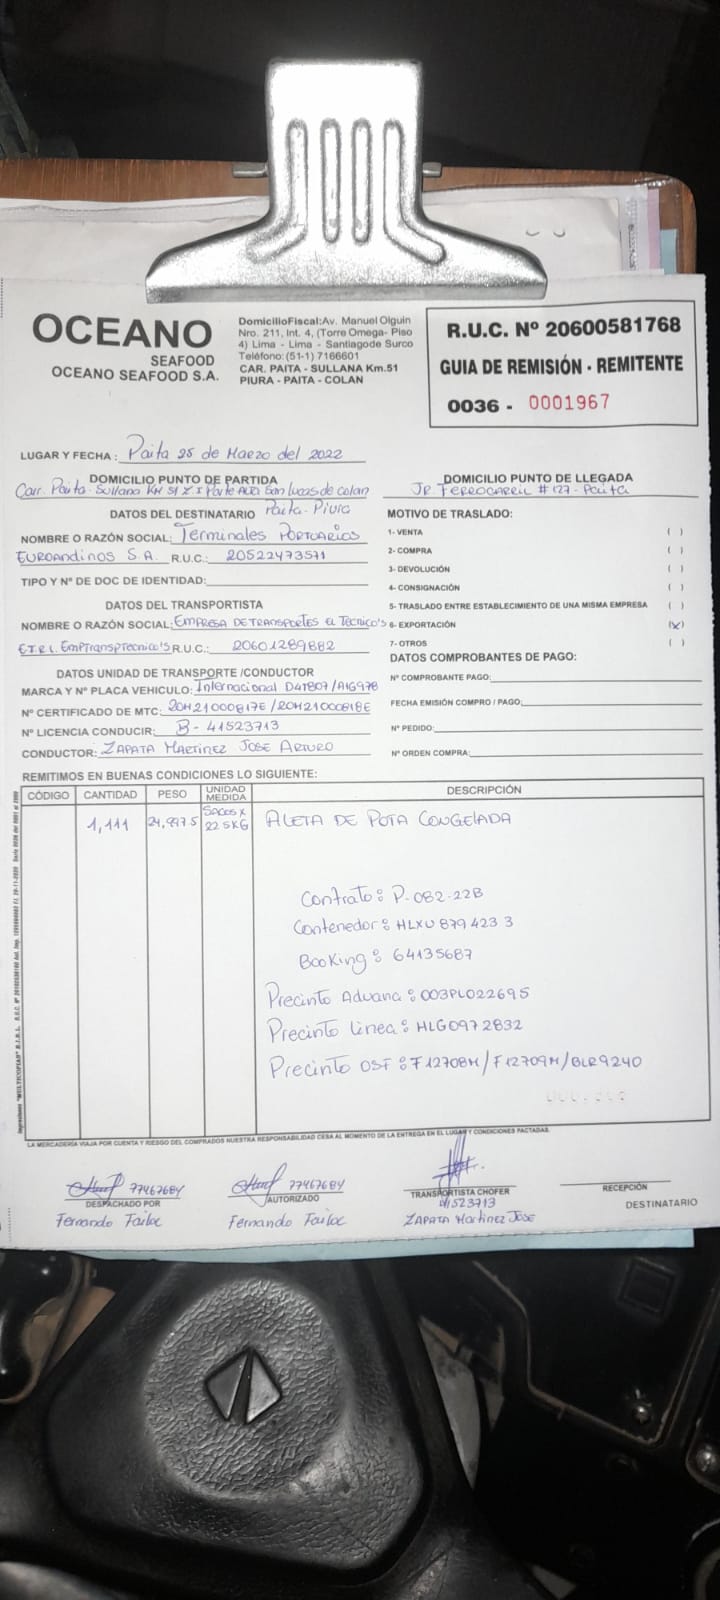 OCEANO
SEAFOOD
OCEANO SEAFOOD S.A.
DomicilioFiscal:Av. Manuel Olguin
Nro. 211, Int. 4, (Torre Omega- Piso
4) Lima - Lima - Santiagode Surco
Teléfono: (51-1) 7166601
CAR. PAITA - SULLANA Km.51
PIURA - PAITA - COLAN
R.U.C. Nº 20600581768
GUIA DE REMISIÓN - REMITENTE
0036 - 0001967
LUGAR Y FECHA : Paita 25 de Marzo del 2022
DOMICILIO PUNTO DE PARTIDA
Carr. Paita - Sullana KM 51 Z.I Parte Alta San Lucas de colan
Paita - Piura
DOMICILIO PUNTO DE LLEGADA
JR FERROCARRIL # 127 - Paita
DATOS DEL DESTINATARIO
NOMBRE O RAZÓN SOCIAL: Terminales PORTUARIOS
EUROANDINOS S.A. R.U.C.: 20522473571
TIPO Y Nº DE DOC DE IDENTIDAD:
DATOS DEL TRANSPORTISTA
NOMBRE O RAZÓN SOCIAL: EMPRESA DE TRANSPORTES EL TECNICO'S
E.I.R.L. EmpTranspTecnico's R.U.C.: 20601289882
DATOS UNIDAD DE TRANSPORTE /CONDUCTOR
MARCA Y Nº PLACA VEHICULO: Internacional D4T807/A1G978
Nº CERTIFICADO DE MTC: 20M21000817E/20M21000818E
Nº LICENCIA CONDUCIR: B- 41523713
CONDUCTOR: ZAPATA MARTINEZ JOSE ARTURO
MOTIVO DE TRASLADO:
1- VENTA ( )
2- COMPRA ( )
3- DEVOLUCIÓN ( )
4- CONSIGNACIÓN ( )
5- TRASLADO ENTRE ESTABLECIMIENTO DE UNA MISMA EMPRESA ( )
6- EXPORTACIÓN (X)
7- OTROS ( )
DATOS COMPROBANTES DE PAGO:
Nº COMPROBANTE PAGO:
FECHA EMISIÓN COMPRO / PAGO:
Nº PEDIDO:
Nº ORDEN COMPRA:
REMITIMOS EN BUENAS CONDICIONES LO SIGUIENTE:
CÓDIGO CANTIDAD PESO UNIDAD MEDIDA DESCRIPCIÓN
1,111 24,997.5 SACOS X 22.5KG ALETA DE POTA CONGELADA
Contrato: P-082-22B
Contenedor: HLXU 879 423 3
Booking: 64135687
Precinto Aduana: 003PL022695
Precinto Linea: HLG0972832
Precinto OSF: F12708M/F12709M/BLR9240
LA MERCADERÍA VIAJA POR CUENTA Y RIESGO DEL COMPRADOS NUESTRA RESPONSABILIDAD CESA AL MOMENTO DE LA ENTREGA EN EL LUGAR Y CONDICIONES PACTADAS.
77467684
DESPACHADO POR
Fernando Failoc
77467684
AUTORIZADO
Fernando Failoc
TRANSPORTISTA CHOFER
41523713
ZAPATA Martinez Jose
RECEPCIÓN
DESTINATARIO